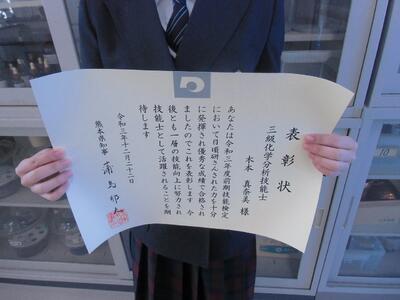 表彰状
三級化学分析技能士
木本 真奈美 様
あなたは令和三年度前期技能検定
において日頃研さんされた力を十分
に発揮され優秀な成績で合格され
ましたのでこれを表彰します 今
後とも一層の技能向上に努力され
技能士として活躍されることを期
待します
令和三年十二月二十二日
熊本県知事 蒲島郁夫